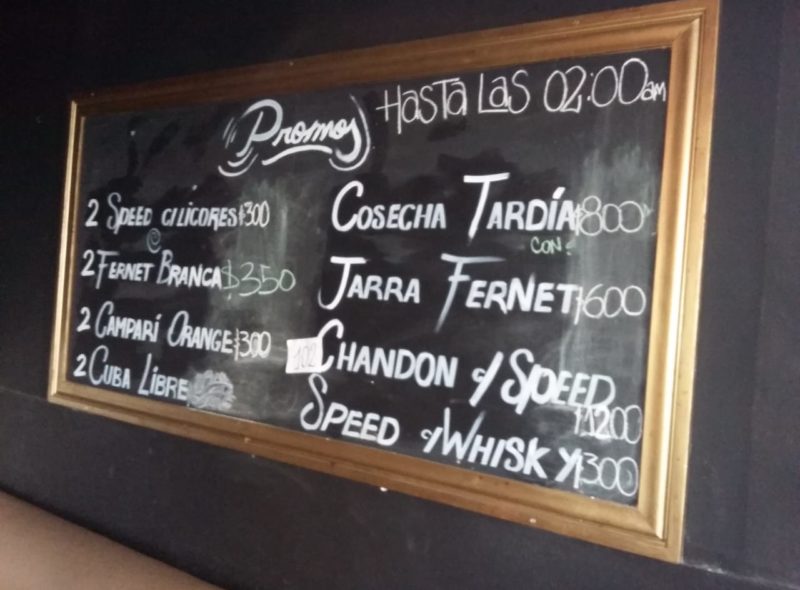 Promos
HASTA LAS 02:00am
2 SPEED C/LICORES $300
2 FERNET BRANCA $350
2 CAMPARÍ ORANGE $300
2 CUBA LIBRE
COSECHA TARDÍA $800
CON:
JARRA FERNET $600
102
CHANDON c/ SPEED
$1200
SPEED c/ WHISKY $300